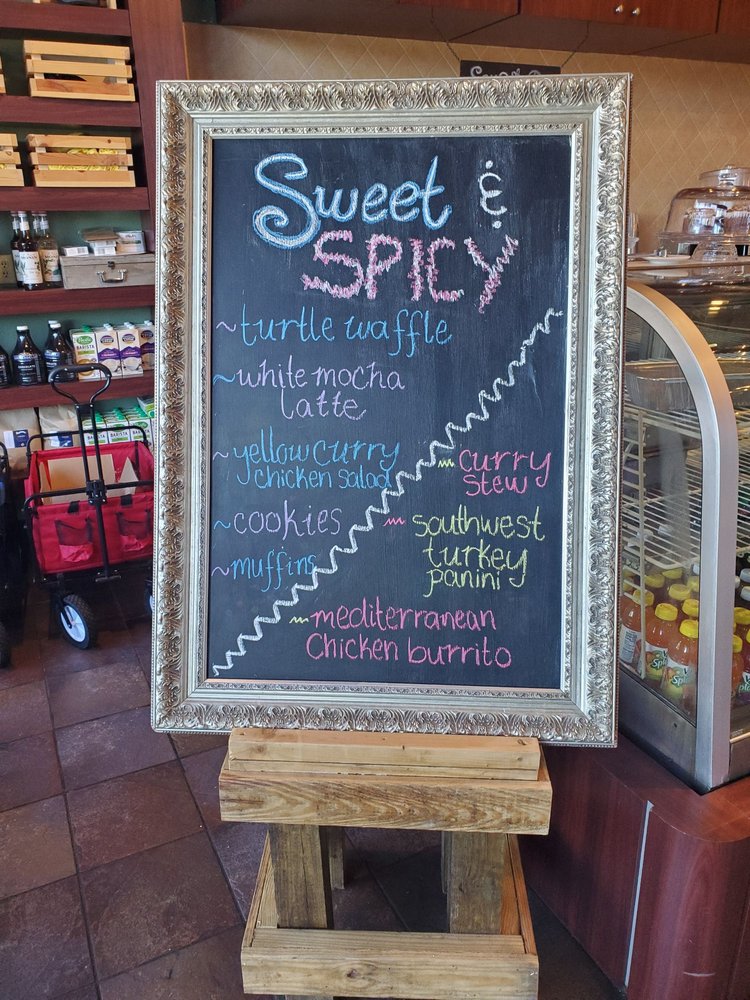 Sweet &
SPICY
~turtle waffle
~white mocha
latte
~yellow curry
chicken salad
~cookies
~muffins
curry
stew
southwest
turkey
panini
mediterranean
Chicken burrito